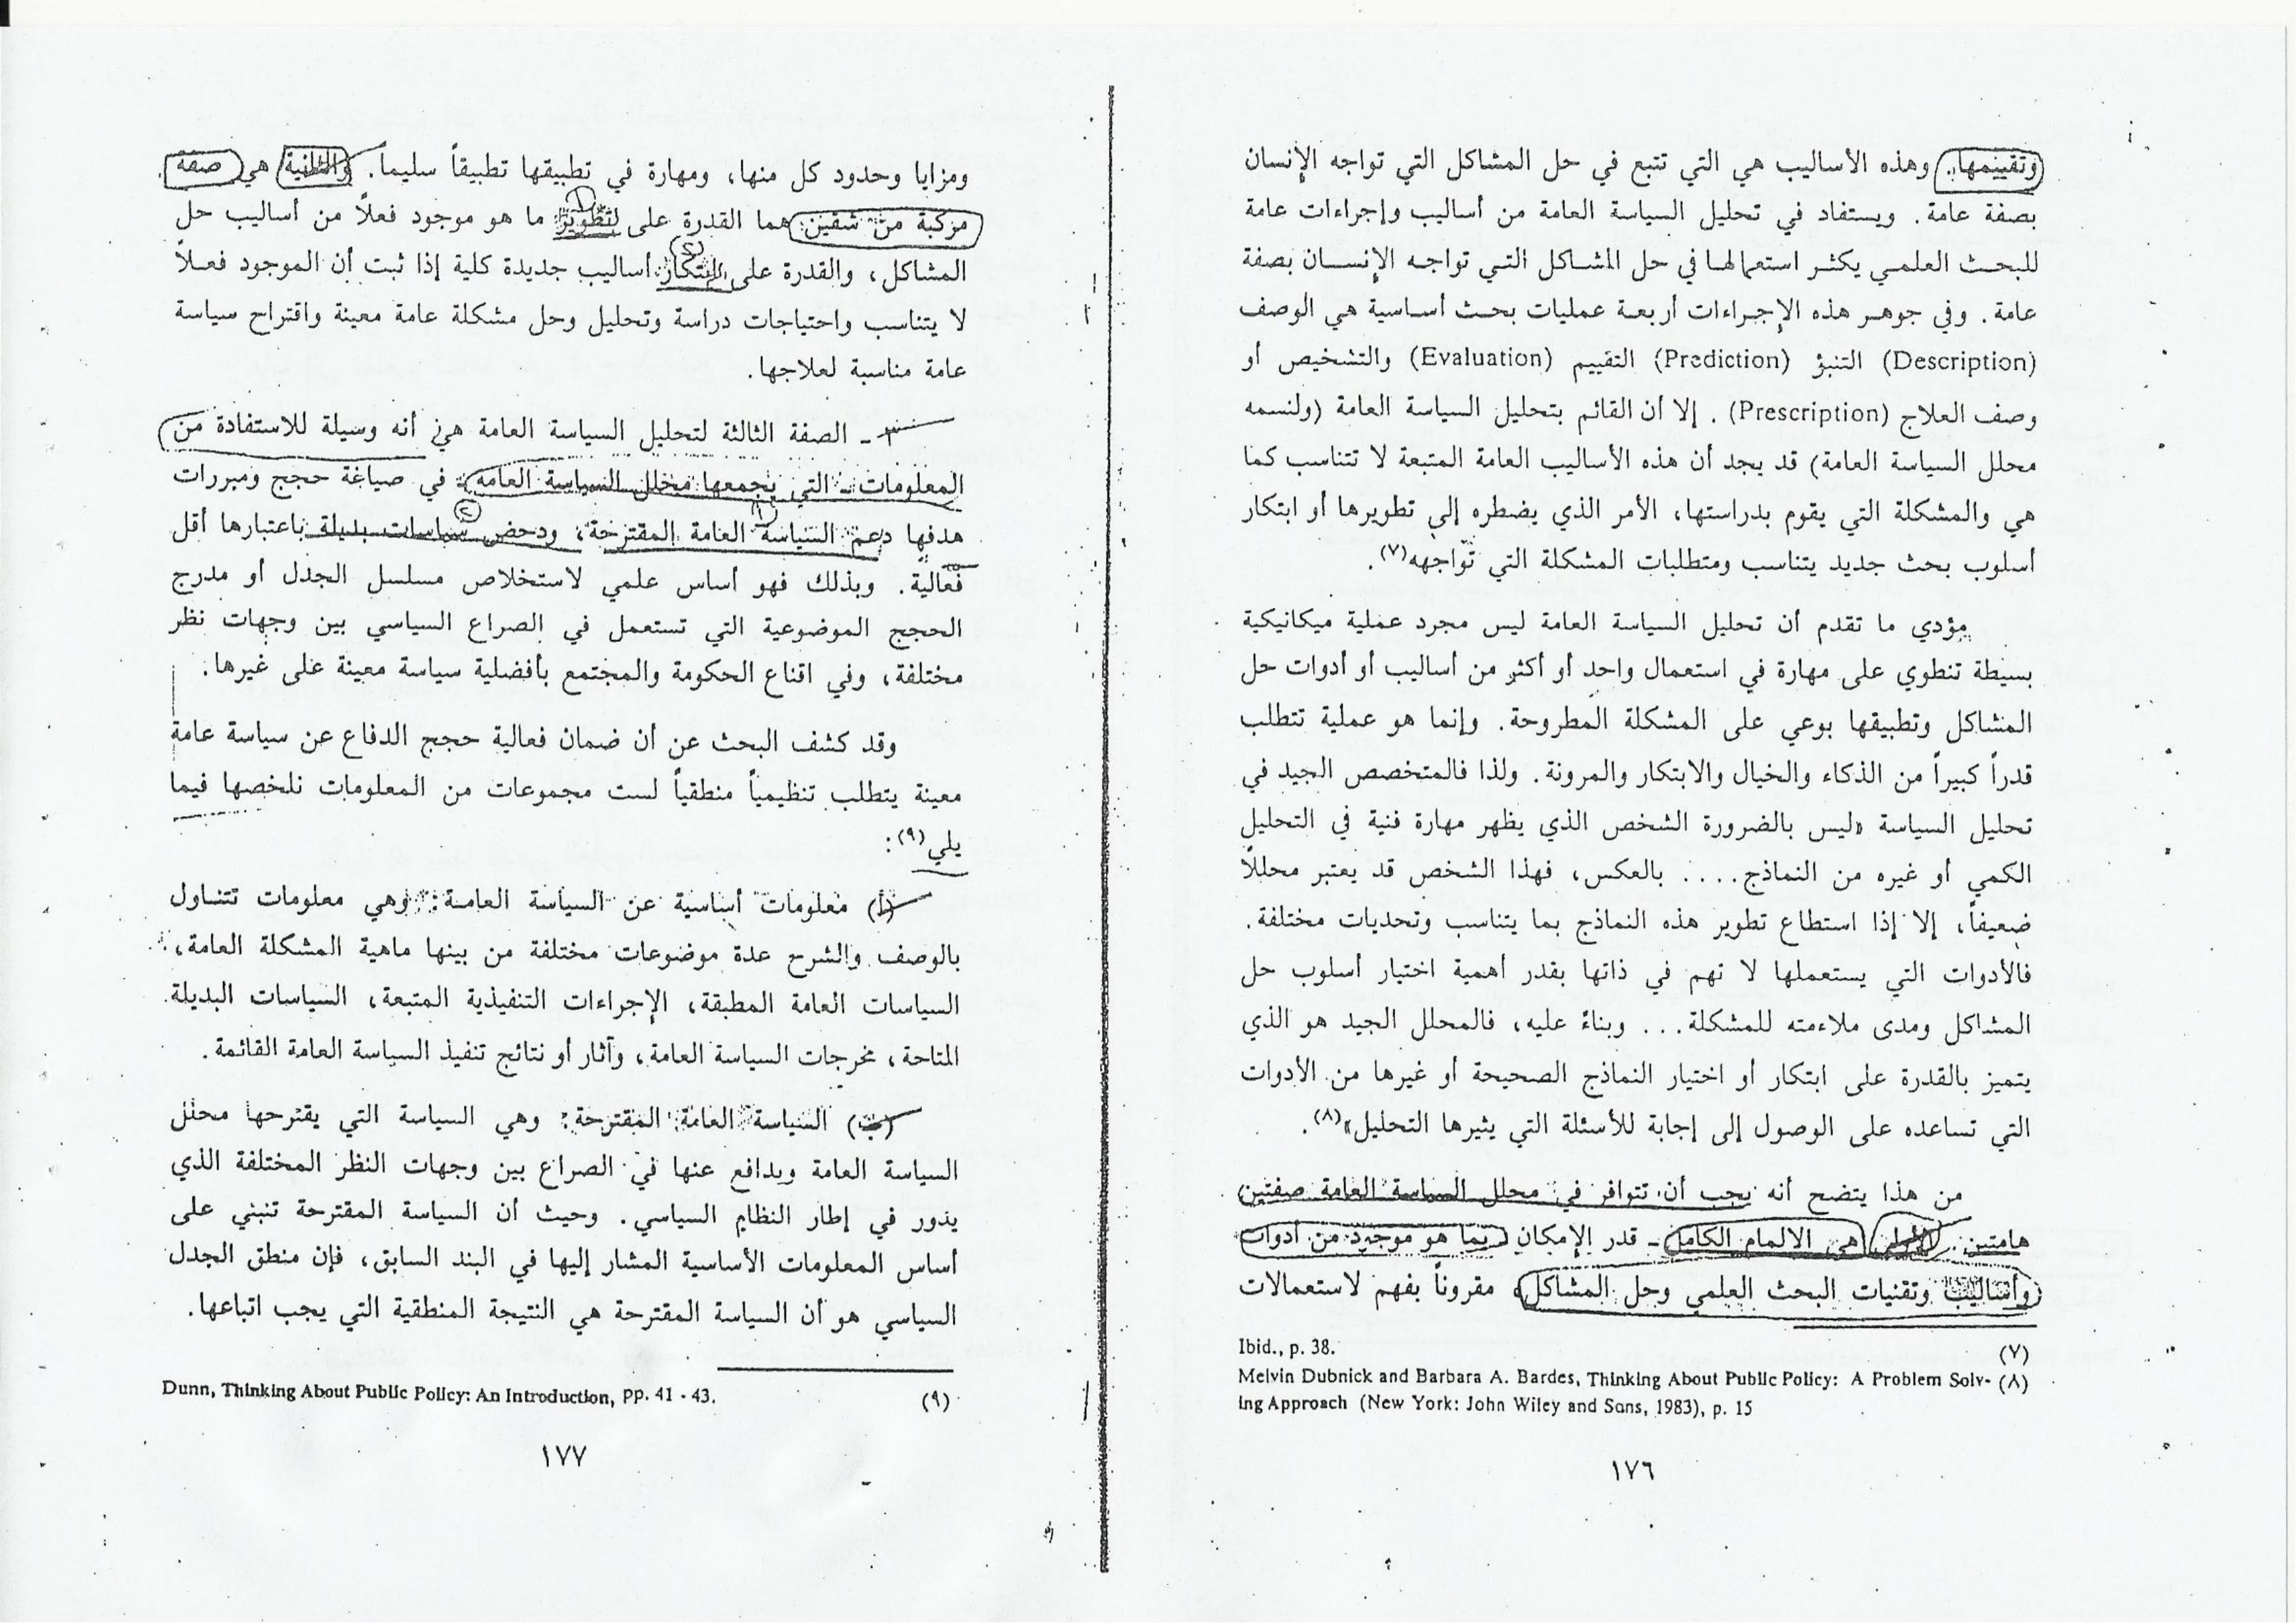 وتقييمها. وهذه الأساليب هي التي تتبع في حل المشاكل التي تواجه الإنسان
بصفة عامة. ويستفاد في تحليل السياسة العامة من أساليب وإجراءات عامة
للبحث العلمي يكثر استعمالها في حل المشاكل التي تواجه الإنسان بصفة
عامة. وفي جوهر هذه الإجراءات أربعة عمليات بحث أساسية هي الوصف
(Description) التنبؤ (Prediction) التقييم (Evaluation) والتشخيص أو
وصف العلاج (Prescription). إلا أن القائم بتحليل السياسة العامة (ولنسمه
محلل السياسة العامة) قد يجد أن هذه الأساليب العامة المتبعة لا تتناسب كما
هي والمشكلة التي يقوم بدراستها، الأمر الذي يضطره إلى تطويرها أو ابتكار
أسلوب بحث جديد يتناسب ومتطلبات المشكلة التي تواجهه(٧).
مؤدي ما تقدم أن تحليل السياسة العامة ليس مجرد عملية ميكانيكية
بسيطة تنطوي على مهارة في استعمال واحد أو أكثر من أساليب أو أدوات حل
المشاكل وتطبيقها بوعي على المشكلة المطروحة. وإنما هو عملية تتطلب
قدراً كبيراً من الذكاء والخيال والابتكار والمرونة. ولذا فالمتخصص الجيد في
تحليل السياسة «ليس بالضرورة الشخص الذي يظهر مهارة فنية في التحليل
الكمي أو غيره من النماذج.... بالعكس، فهذا الشخص قد يعتبر محللاً
ضعيفاً، إلا إذا استطاع تطوير هذه النماذج بما يتناسب وتحديات مختلفة.
فالأدوات التي يستعملها لا تهم في ذاتها بقدر أهمية اختيار أسلوب حل
المشاكل ومدى ملاءمته للمشكلة... وبناءً عليه، فالمحلل الجيد هو الذي
يتميز بالقدرة على ابتكار أو اختيار النماذج الصحيحة أو غيرها من الأدوات
التي تساعده على الوصول إلى إجابة للأسئلة التي يثيرها التحليل»(٨).
من هذا يتضح أنه يجب أن تتوافر في محلل السياسة العامة صفتين
هامتين. الأولى هي الالمام الكامل - قدر الإمكان - بما هو موجود من أدوات
وأساليب وتقنيات البحث العلمي وحل المشاكل، مقروناً بفهم لاستعمالات
(٧) Ibid., p. 38.
(٨) Melvin Dubnick and Barbara A. Bardes, Thinking About Public Policy: A Problem Solv-
ing Approach (New York: John Wiley and Sons, 1983), p. 15
١٧٦
ومزايا وحدود كل منها، ومهارة في تطبيقها تطبيقاً سليماً. والثانية هي صفة
مركبة من شقين هما القدرة على تطوير ما هو موجود فعلاً من أساليب حل
المشاكل، والقدرة على ابتكار أساليب جديدة كلية إذا ثبت أن الموجود فعلاً
لا يتناسب واحتياجات دراسة وتحليل وحل مشكلة عامة معينة واقتراح سياسة
عامة مناسبة لعلاجها.
٣ - الصفة الثالثة لتحليل السياسة العامة هي أنه وسيلة للاستفادة من
المعلومات - التي يجمعها محلل السياسة العامة - في صياغة حجج ومبررات
هدفها دعم السياسة العامة المقترحة، ودحض سياسات بديلة باعتبارها أقل
فعالية. وبذلك فهو أساس علمي لاستخلاص مسلسل الجدل أو مدرج
الحجج الموضوعية التي تستعمل في الصراع السياسي بين وجهات نظر
مختلفة، وفي اقناع الحكومة والمجتمع بأفضلية سياسة معينة على غيرها.
وقد كشف البحث عن أن ضمان فعالية حجج الدفاع عن سياسة عامة
معينة يتطلب تنظيمياً منطقياً لست مجموعات من المعلومات نلخصها فيما
يلي(٩):
(أ) معلومات أساسية عن السياسة العامة: وهي معلومات تتناول
بالوصف والشرح عدة موضوعات مختلفة من بينها ماهية المشكلة العامة،
السياسات العامة المطبقة، الإجراءات التنفيذية المتبعة، السياسات البديلة
المتاحة، مخرجات السياسة العامة، وآثار أو نتائج تنفيذ السياسة العامة القائمة.
(ب) السياسة العامة المقترحة: وهي السياسة التي يقترحها محلل
السياسة العامة ويدافع عنها في الصراع بين وجهات النظر المختلفة الذي
يدور في إطار النظام السياسي. وحيث أن السياسة المقترحة تنبني على
أساس المعلومات الأساسية المشار إليها في البند السابق، فإن منطق الجدل
السياسي هو أن السياسة المقترحة هي النتيجة المنطقية التي يجب اتباعها.
(٩) Dunn, Thinking About Public Policy: An Introduction, pp. 41 - 43.
١٧٧